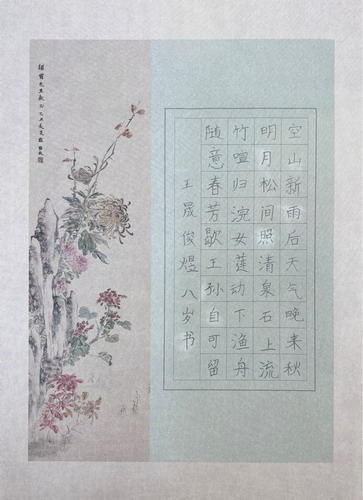 空山新雨后天气晚来秋
明月松间照清泉石上流
竹喧归浣女莲动下渔舟
随意春芳歇王孙自可留
王晟俊煜八岁书